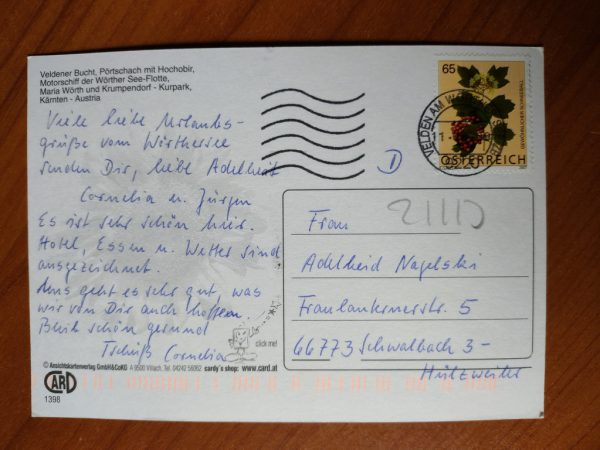 Veldener Bucht, Pörtschach mit Hochobir,
Motorschiff der Wörther See-Flotte,
Maria Wörth und Krumpendorf - Kurpark,
Kärnten - Austria
Viele liebe Urlaubs-
grüße vom Wörthersee
senden Dir, liebe Adelheid
Cornelia u. Jürgen
Es ist sehr schön hier.
Hotel, Essen u. Wetter sind
ausgezeichnet.
Uns geht es sehr gut, was
wir von Dir auch hoffen.
Bleib schön gesund
Tschüß Cornelia
© Ansichtskartenverlag GmbH&CoKG A 9500 Villach, Tel. 04242 56062 cardy's shop: www.card.at
click me!
CARD
1398
65
GEWÖHNLICHER SCHNEEBALL
ÖSTERREICH
VELDEN AM
9220
Frau
Adelheid Nagelski
Fraulauternerstr. 5
66773 Schwalbach 3 -
Hülzweiler